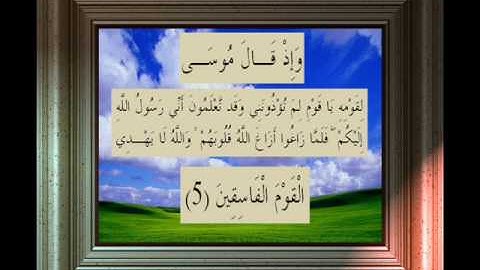 وَإِذْ قَـــالَ مُوسَـــى
لِقَوْمِهِ يَا قَوْمِ لِمَ تُؤْذُونَنِي وَقَد تَّعْلَمُونَ أَنِّي رَسُولُ اللَّهِ
إِلَيْكُمْ ۖ فَلَمَّا زَاغُوا أَزَاغَ اللَّهُ قُلُوبَهُمْ ۚ وَاللَّهُ لَا يَهْـــدِي
الْقَوْمَ الْفَاسِقِينَ (5)